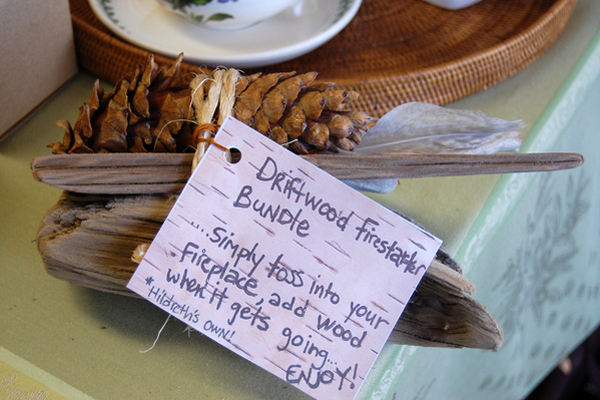 Driftwood Firestarter
Bundle
....Simply toss into your
Fireplace, add wood
when it gets going...
ENJOY!
* Hildreth's OWN!